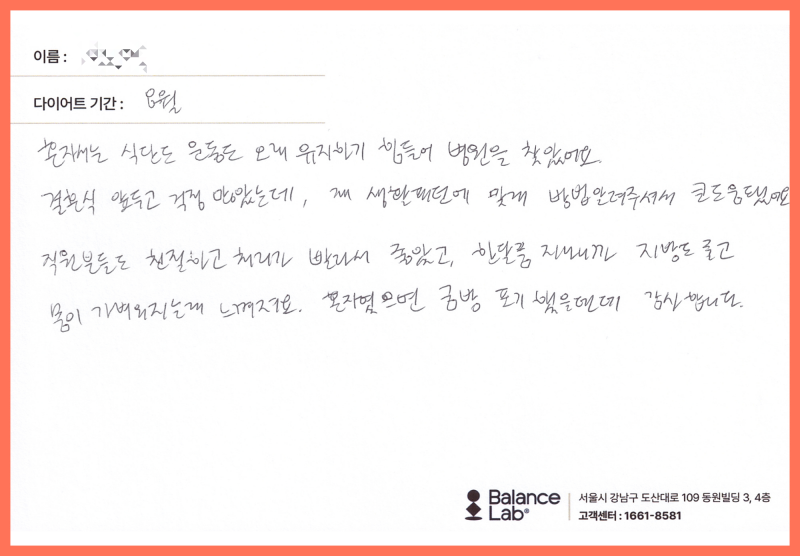 이름 :
다이어트 기간 : 8월
혼자서는 식단도 운동도 오래 유지하기 힘들어 병원을 찾았어요
결혼식 앞두고 걱정 많았는데, 제 생활패턴에 맞게 방법알려주셔서 큰도움됐어요
직원분들도 친절하고 처리가 빨라서 좋았고, 한달쯤 지나니까 지방도 줄고
몸이 가벼워지는게 느껴져요. 혼자였으면 금방 포기했을텐데 감사합니다.
Balance Lab®
서울시 강남구 도산대로 109 동원빌딩 3, 4층
고객센터 : 1661-8581